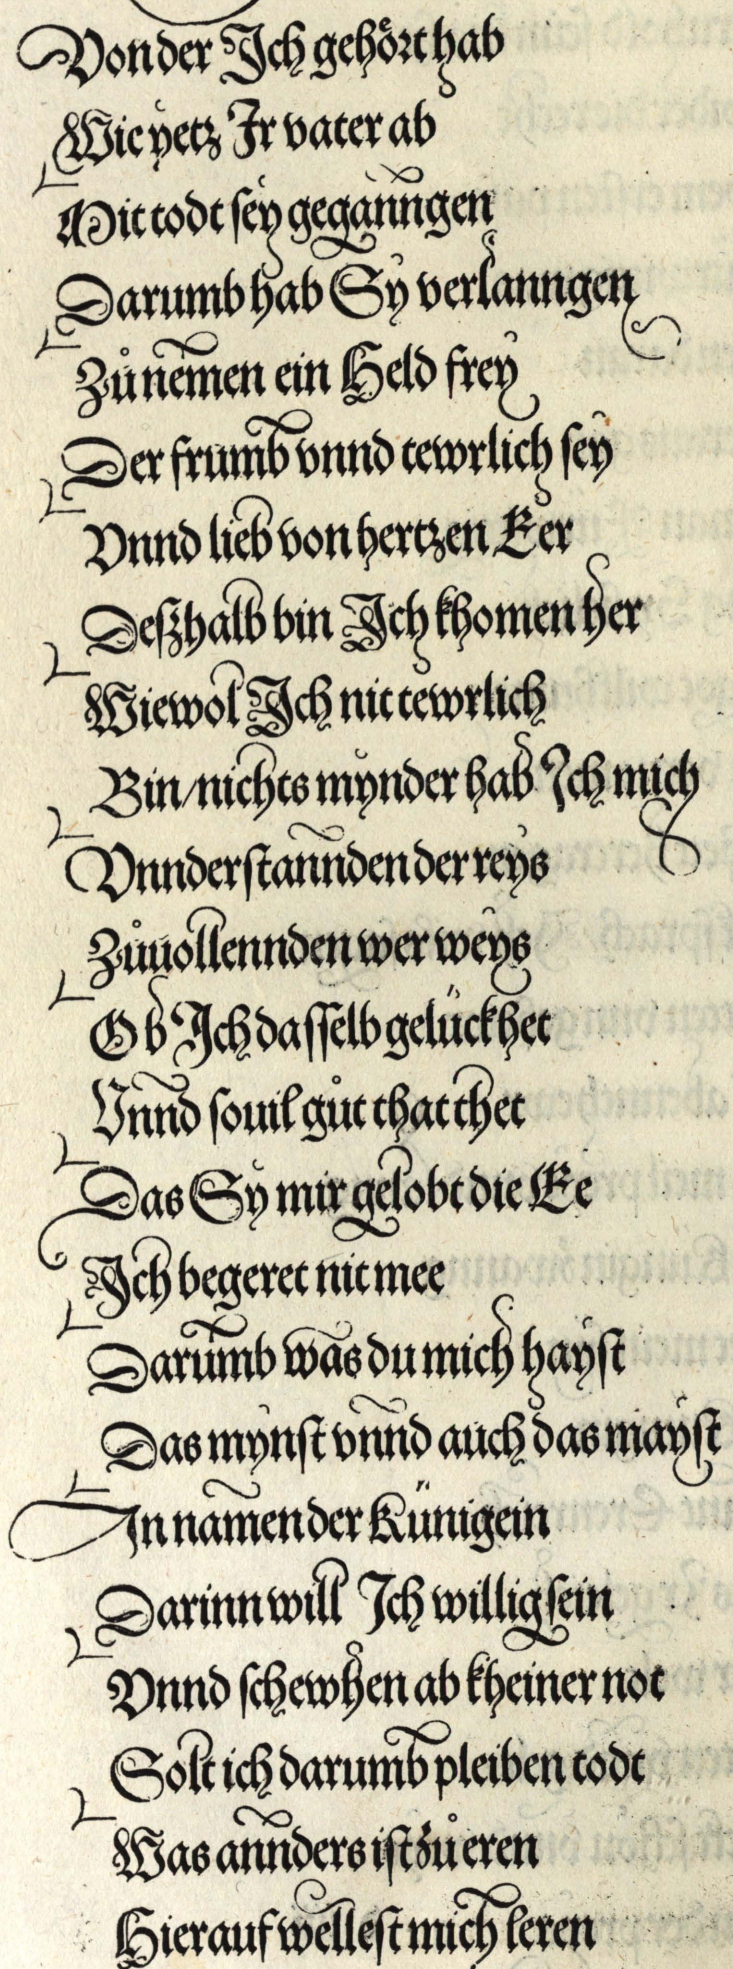 Von der Ich gehört hab
Wie yetz Ir vater ab
Mit todt sey geganngen
Darumb hab Sy verlanngen
Zů nemen ein Held frey
Der frumb vnnd tewrlich sey
Vnnd lieb von hertzen Eer
Deßhalb bin Ich khomen her
Wiewol Ich nit tewrlich
Bin/nichts mynder hab Ich mich
Vnnderstannden der reys
Zůuollennden wer weys
Ob Ich dasselb gelückhet
Vnnd souil gůt that thet
Das Sy mir gelobt die Ee
Ich begeret nit mee
Darumb was du mich hayst
Das mynst vnnd auch das mayst
In namen der Künigein
Darinn will Ich willig sein
Vnnd schewhen ab kheiner not
Solt ich darumb pleiben todt
Was annders ist zů eren
Hierauf wellest mich leren